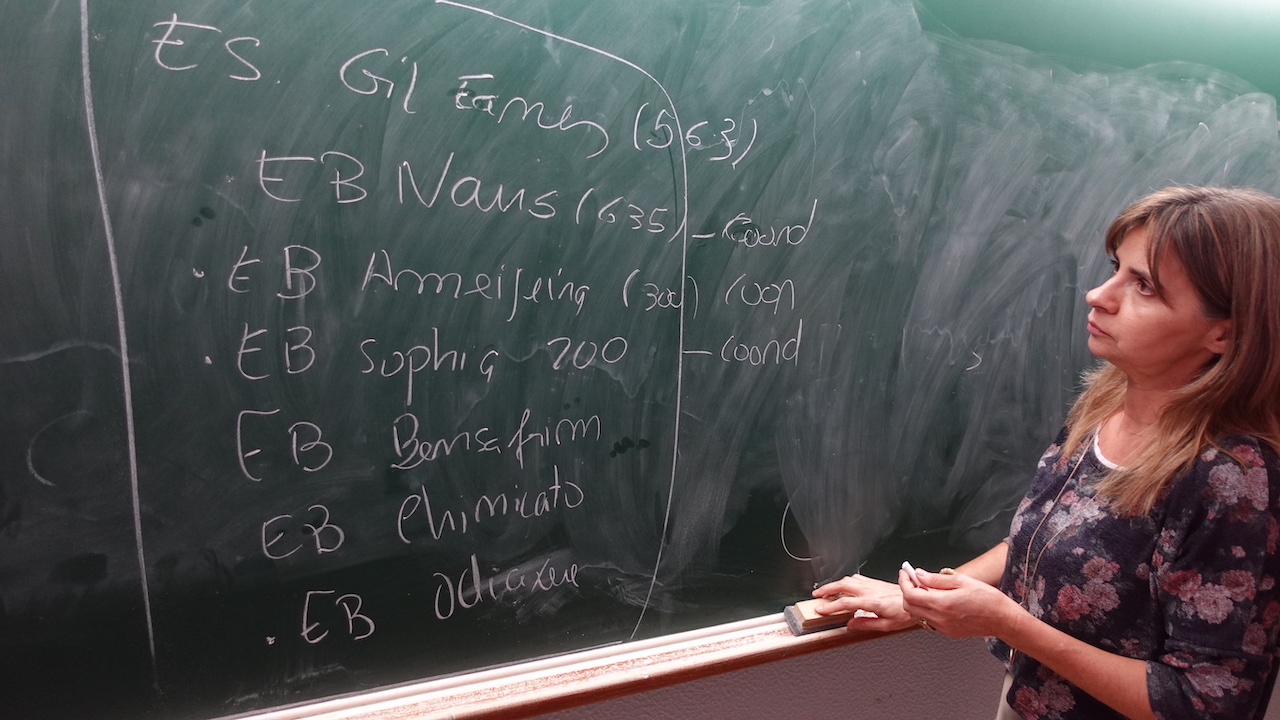 ES. Gil Eanes (563)
EB Naus (635) - Coord
. EB Ameijeira (300) Coord
. EB Sophia 200 - Coord
EB Bensafrim
EB Chinicato
. EB Odiaxere